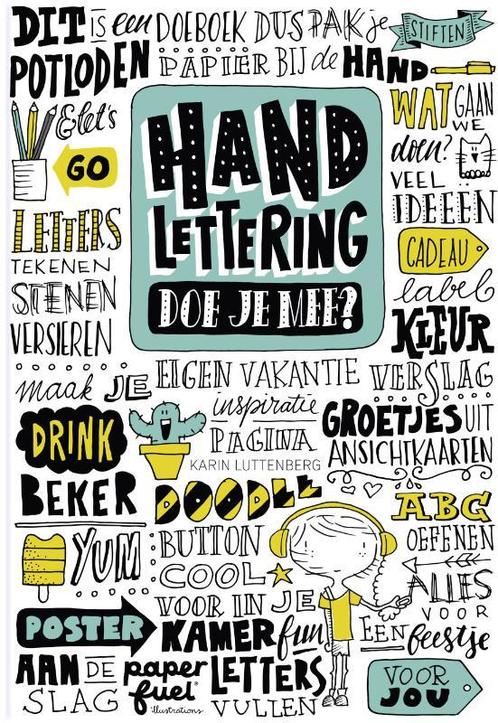 DIT is een DOEBOEK DUS PAK je STIFTEN
POTLODEN PAPIER BIJ de HAND
& let's
GO
WAT GAAN
WE
doen?
VEEL
IDEEEN
HAND
LETTERING
DOE JE MEE?
LETTERS
TEKENEN
STENEN
VERSIEREN
CADEAU
label
KLEUR
maak JE EIGEN VAKANTIE VERSLAG
inspiratie
PAGINA
KARIN LUTTENBERG
GROETJES UIT
ANSICHTKAARTEN
DRINK
BEKER
DOODLE
ABC
OEFENEN
YUM
BUTTON
COOL
VOOR IN JE
KAMER fun
ALLES
VOOR
EEN feestje
POSTER
AAN DE
SLAG
paper
fuel
illustrations
LETTERS
VULLEN
VOOR
JOU